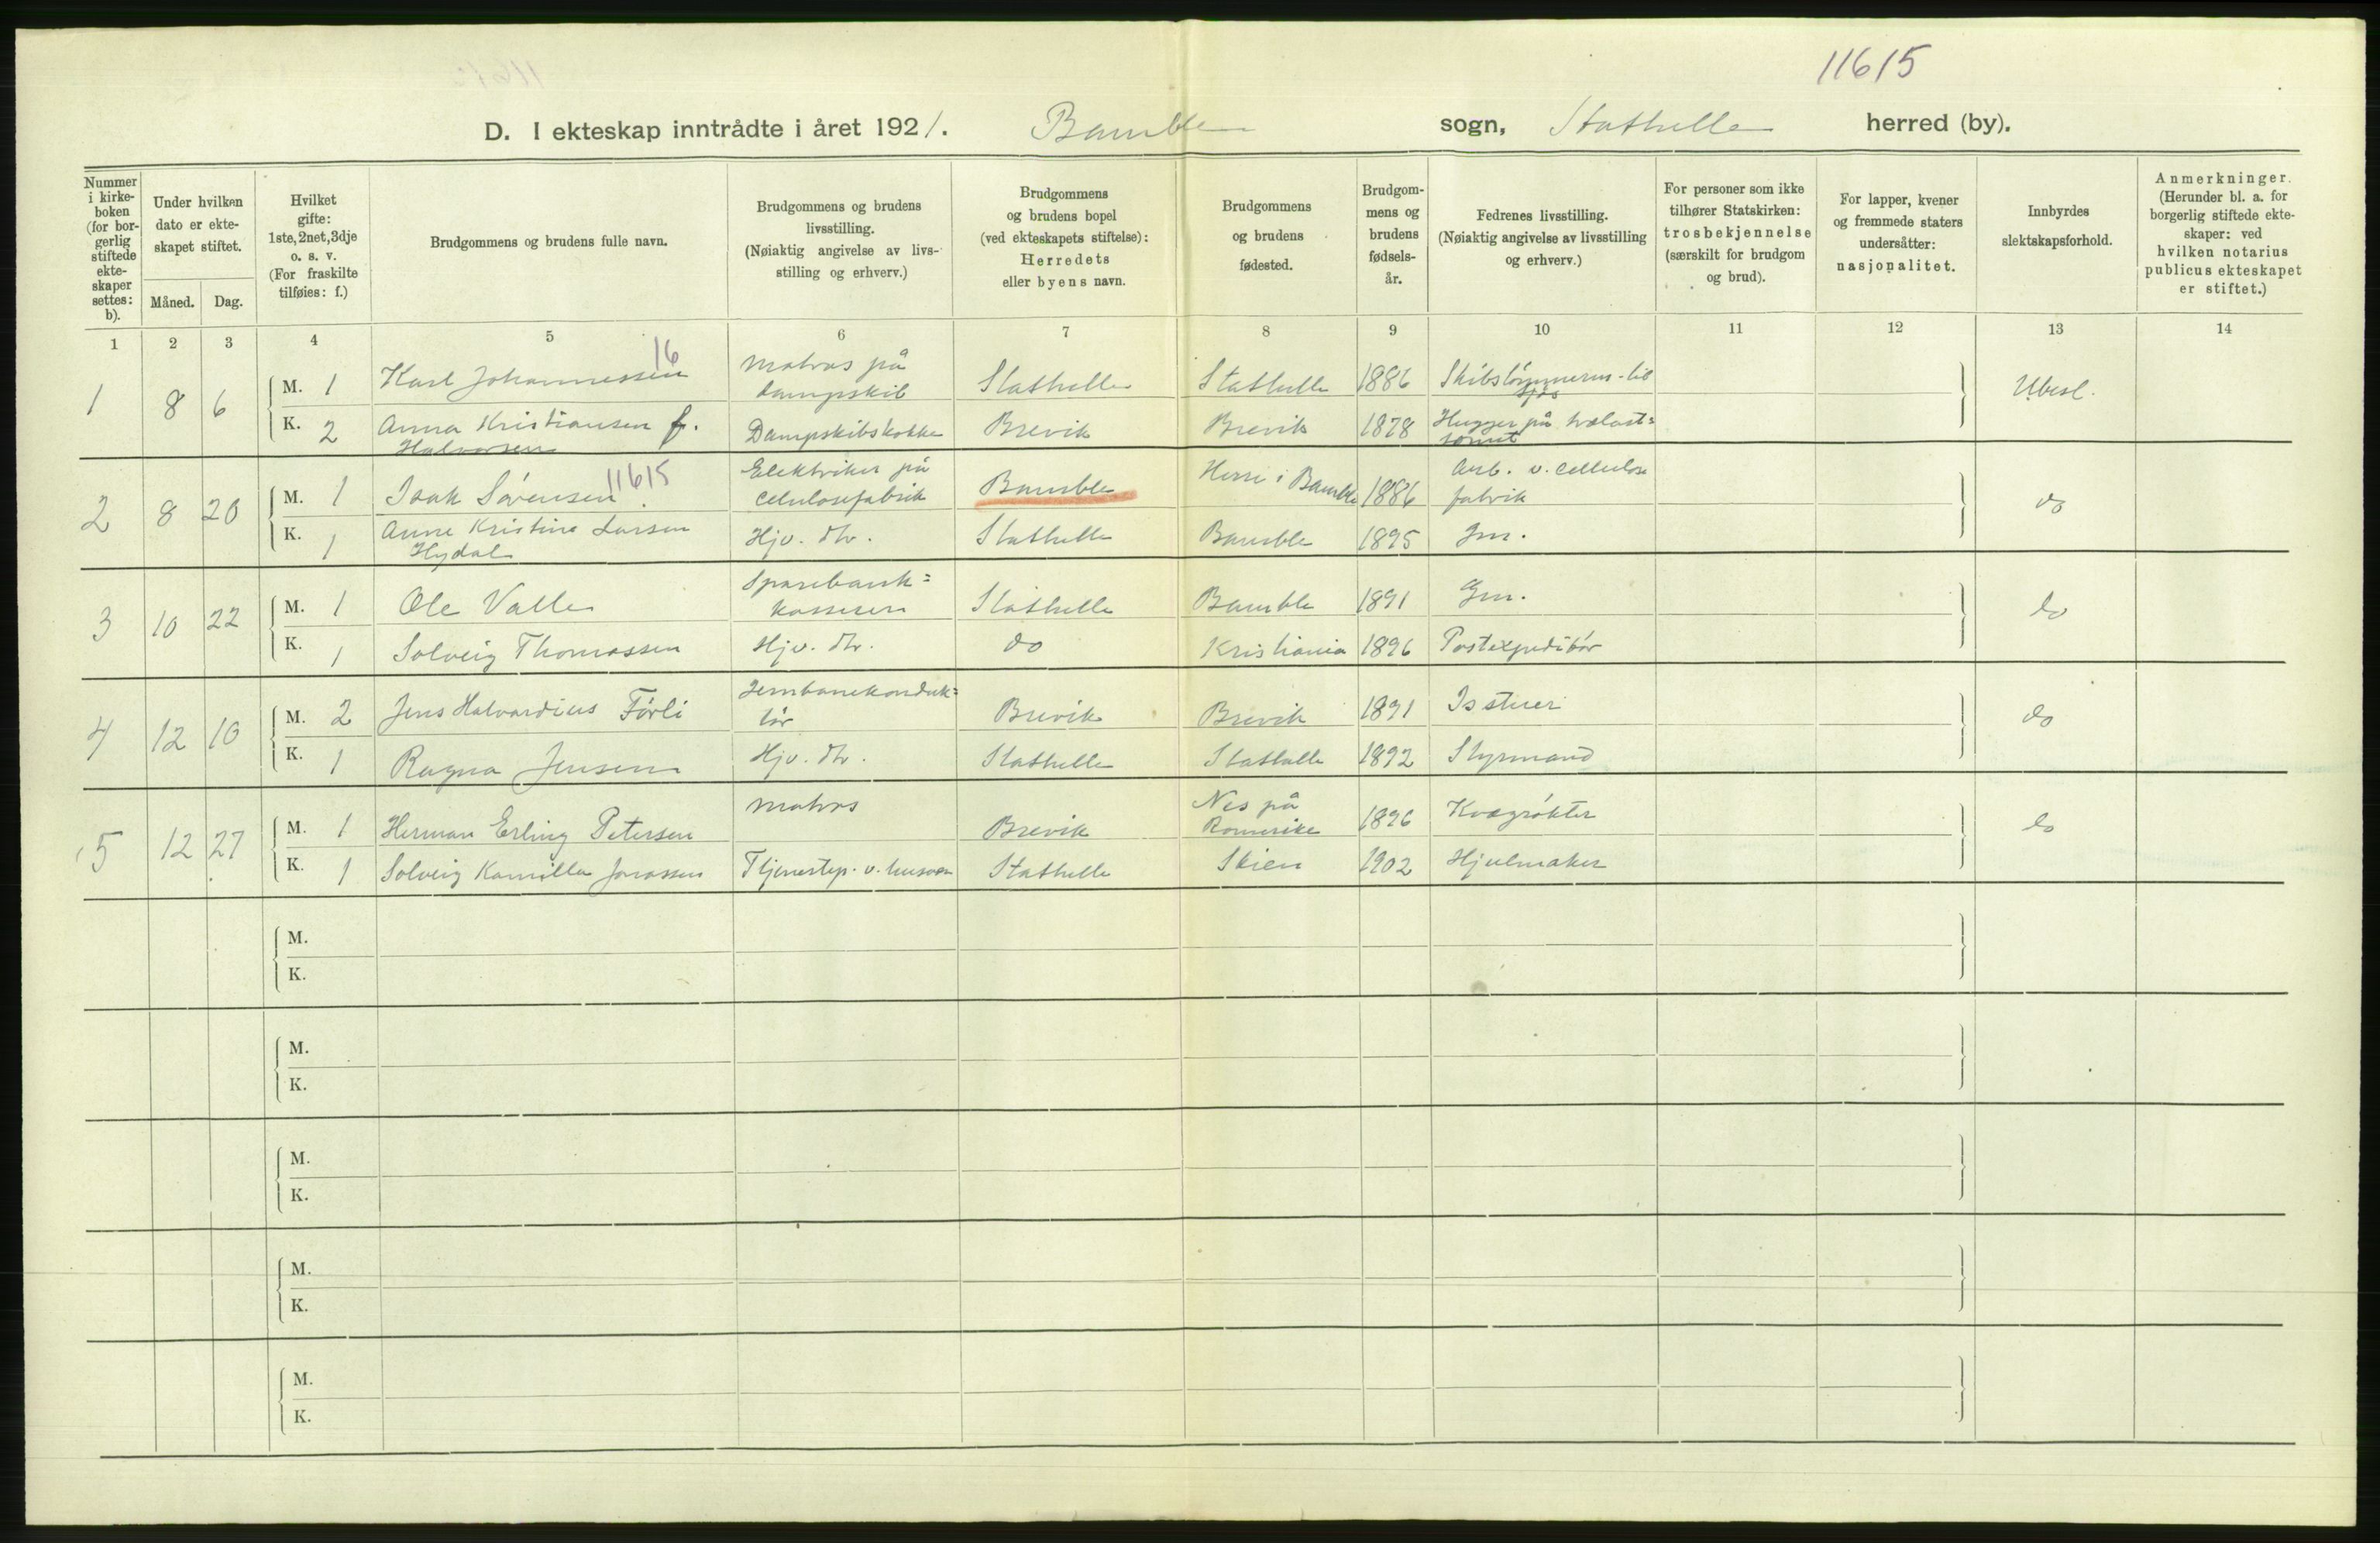 11615
D. I ekteskap inntrådte i året 1921. Bamble sogn, Stathelle herred (by).
Nummer i kirke-boken (for bor-gerlig stiftede ekte-skaper settes: b).
Under hvilken dato er ekte-skapet stiftet.
Måned. Dag.
Hvilket gifte: 1ste, 2net, 3dje o. s. v. (For fraskilte tilføies: f.)
Brudgommens og brudens fulle navn.
Brudgommens og brudens livsstilling. (Nøiaktig angivelse av livs-stilling og erhverv.)
Brudgommens og brudens bopel (ved ekteskapets stiftelse): Herredets eller byens navn.
Brudgommens og brudens fødested.
Brudgom-mens og brudens fødsels-år.
Fedrenes livsstilling. (Nøiaktig angivelse av livsstilling og erhverv.)
For personer som ikke tilhører Statskirken: trosbekjennelse (særskilt for brudgom og brud).
For lapper, kvener og fremmede staters undersåtter: nasjonalitet.
Innbyrdes slektskapsforhold.
Anmerkninger. (Herunder bl. a. for borgerlig stiftede ekte-skaper: ved hvilken notarius publicus ekteskapet er stiftet.)
1 2 3 4 5 6 7 8 9 10 11 12 13 14
16
1 8 6 M. 1 Karl Johannessen matros på dampskib Stathelle Stathelle 1886 Skibstømmerm. til sjøs Ubesl.
K. 2 Anna Kristiansen f. Halvorsen Dampskibskokke Brevik Brevik 1878 Hugger på trælast=tomt
11615
2 8 20 M. 1 Isak Sørensen Elektriker på celulosefabrik Bamble Herre i Bamble 1886 Arb. v. cellulose fabrik do
K. 1 Anne Kristine Larsen Hydal Hjv. dtr. Stathelle Bamble 1895 Gm.
3 10 22 M. 1 Ole Valle Sparebank=kasserer Stathelle Bamble 1891 Gm. do
K. 1 Solveig Thomassen Hjv. dtr. do Kristiania 1896 Postexpeditør
4 12 10 M. 2 Jens Halvardius Førli Jernbanekonduk=tør Brevik Brevik 1891 Isstuer do
K. 1 Ragna Jensen Hjv. dtr. Stathelle Stathelle 1892 Styrmand
5 12 27 M. 1 Herman Erling Petersen matros Brevik Nes på Romerike 1896 Kvegrøkter do
K. 1 Solveig Kamilla Jonassen Tjenestep. v. husven Stathelle Skien 1902 Hjulmaker
M.
K.
M.
K.
M.
K.
M.
K.
M.
K.